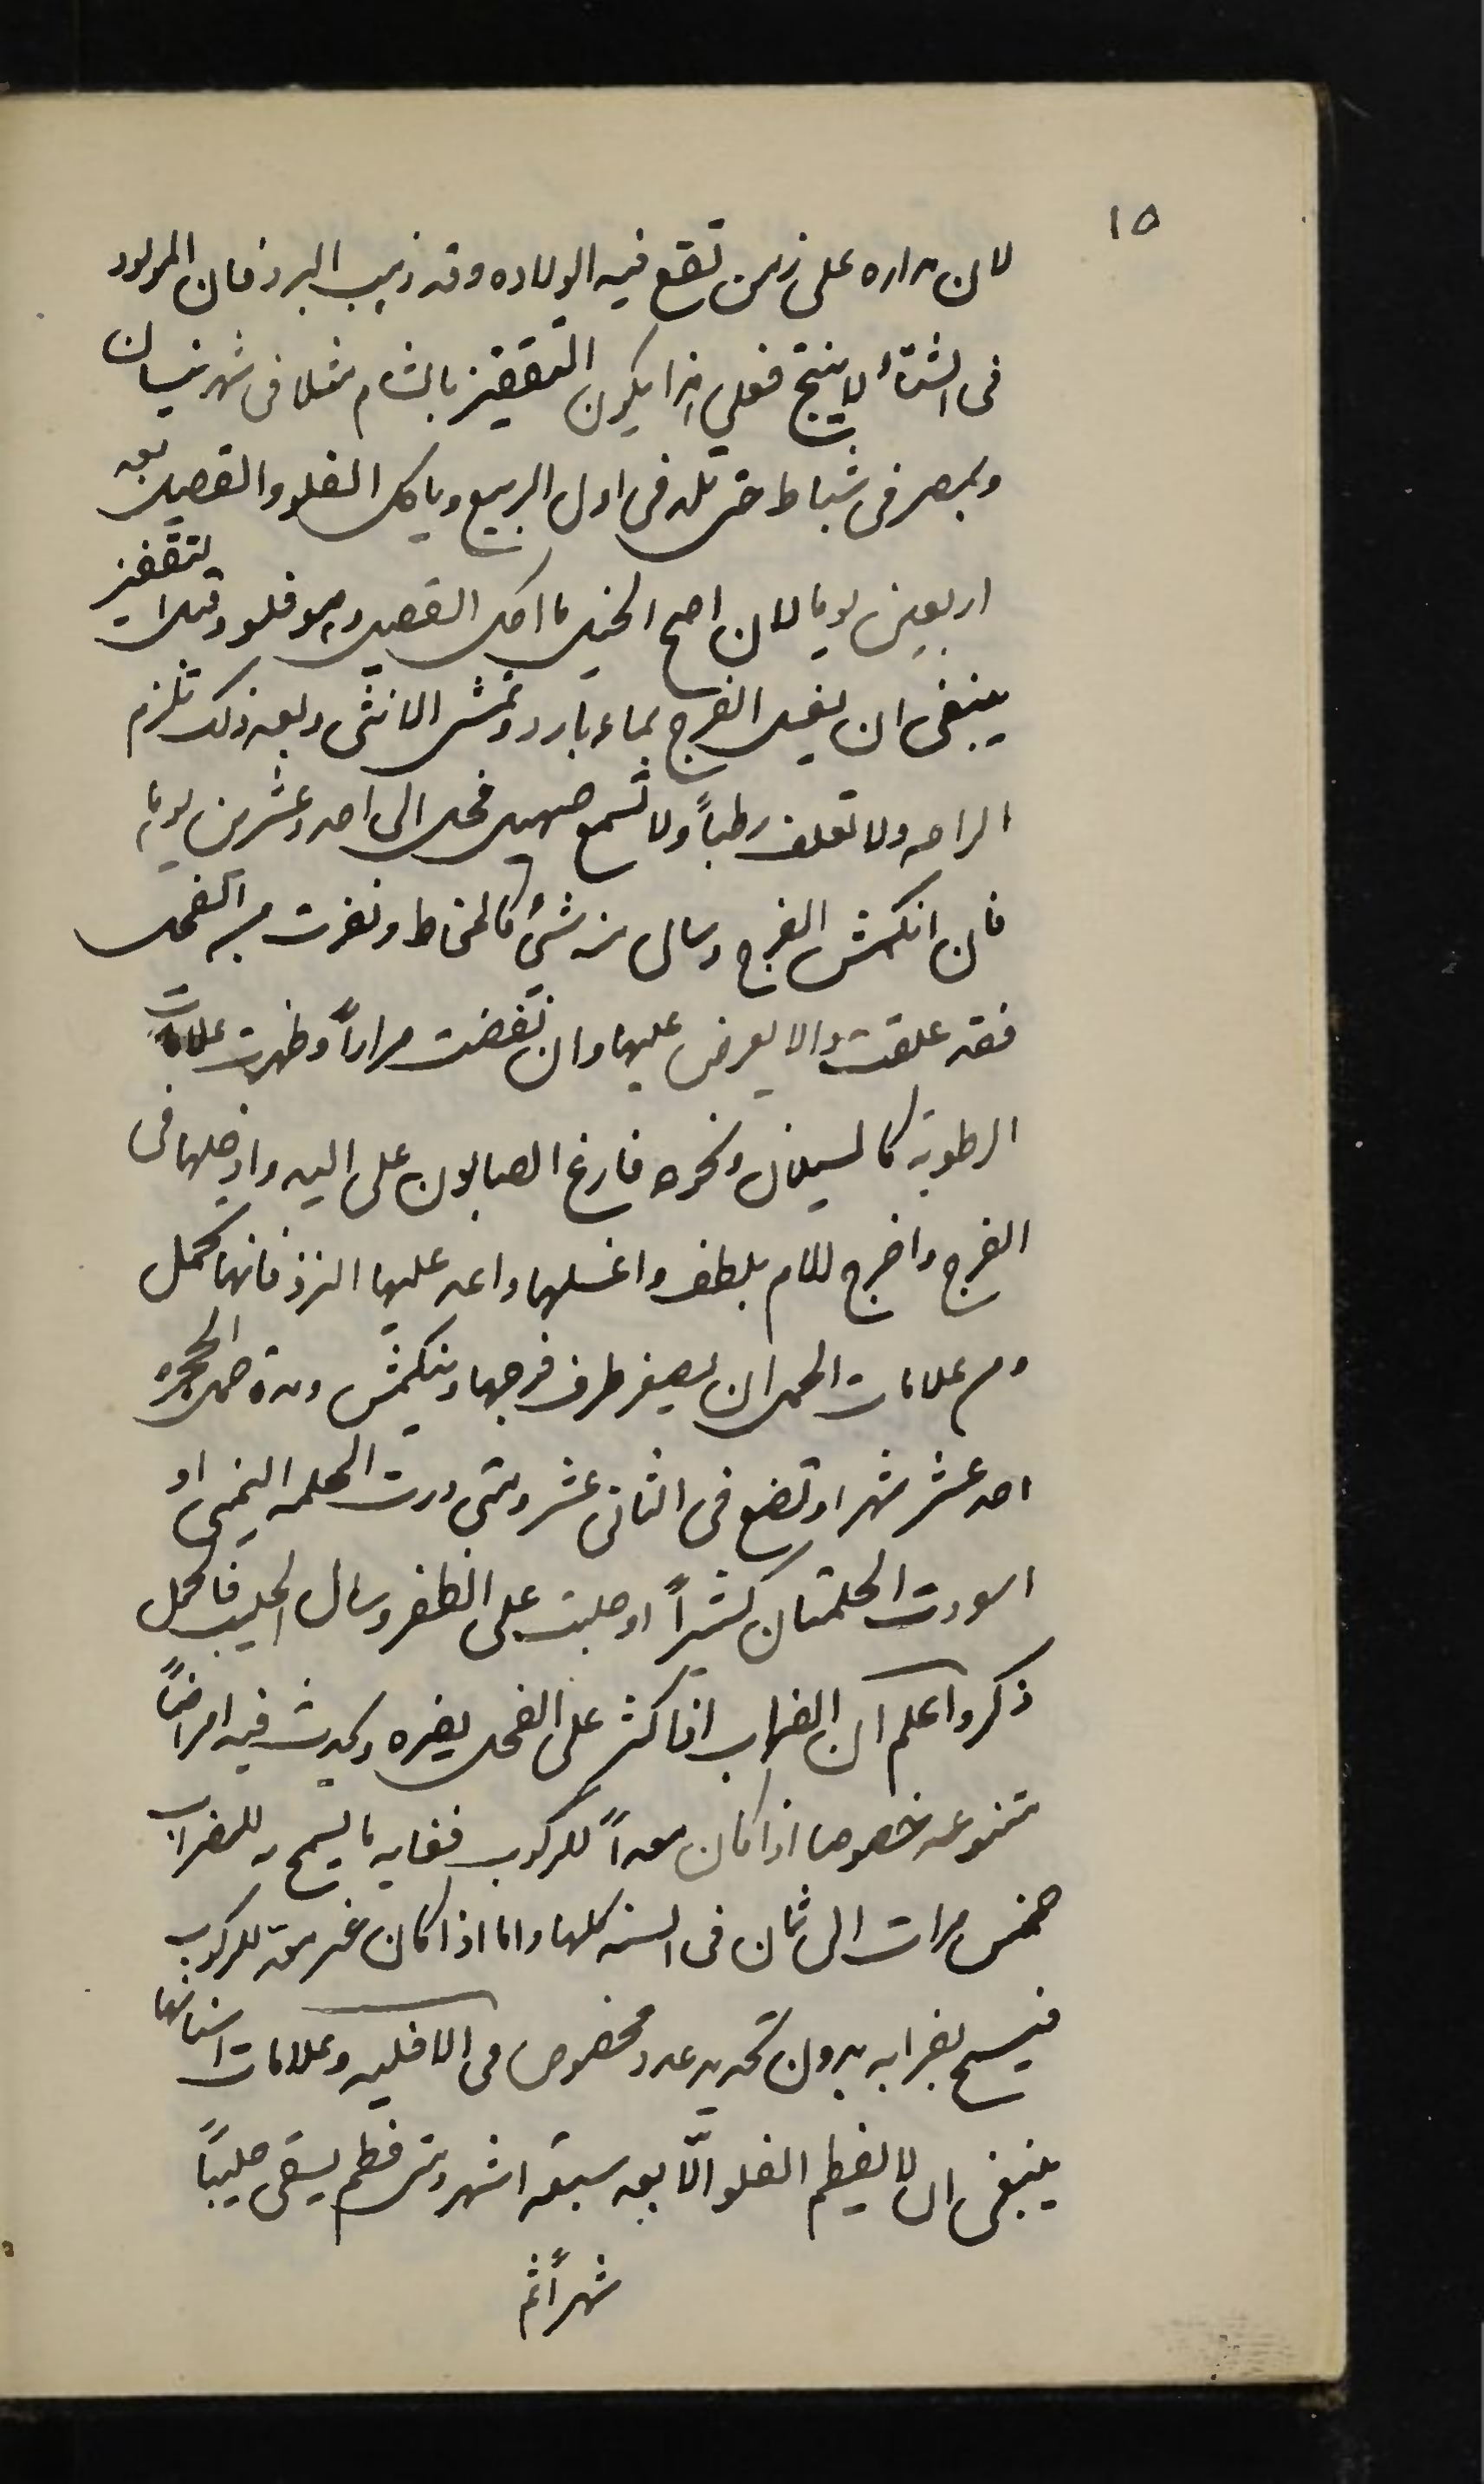 ١٥
لان مداره على زمن تقع فيه الولاده وقد ذهب البرد فان المولود
فى الشتاء لا ينتج فعلى هذا يكون التقفيز بالشام مثلا فى شهر نيسان
وبمصر فى شباط حتى تلد فى اول الربيع وياكل الفلو القصيل بعد
اربعين يوما لان اصح الخيل ما اكل القصيل وهو فلو وقبل التقفيز
ينبغى ان يغسل الفرج بماء بارد وتمشى الانثى وبعد ذلك تلزم
الراحه ولا تعلف رطباً ولا تسمع صهيل فحل الى احد وعشرين يوما
فان انكمش الفرج وسال منه شئ كالمخاط ونفرت من الفحل
فقد علقت والا يعرض عليها وان نفضت مراراً وظهرت علامات
الرطوبة كالسيلان ونحوه فارغ الصابون على اليد وادخلها فى
الفرج واخرج للام بلطف واغسلها واعد عليها النزو فانها تحمل
ومن علامات الحمل ان يصغر طرف فرجها وينكمش ومدة حمل الحجره
احد عشر شهرا وتضع فى الثانى عشر ومتى درت الحلمه اليمنى او
اسودت الحلمتان كثيراً او حلبت على الظفر وسال الحليب فالحمل
ذكر واعلم ان الضراب اذا كثر على الفحل يضره ويحدث فيه امراضاً
متنوعه خصوصا اذا كان معداً للركوب فغايه ما يسمح به للضراب
خمس مرات الى ثمان فى السنه كلها واما اذا كان غير معد للركوب
فيسمح بضرابه بدون تحديد عدد مخصوص فى الافليه وعلامات اسنانها
ينبغى ان لا يفطم الفلو الّا بعد سبعة اشهر ومتى فطم يسقى حليبًا
شهراً ثم